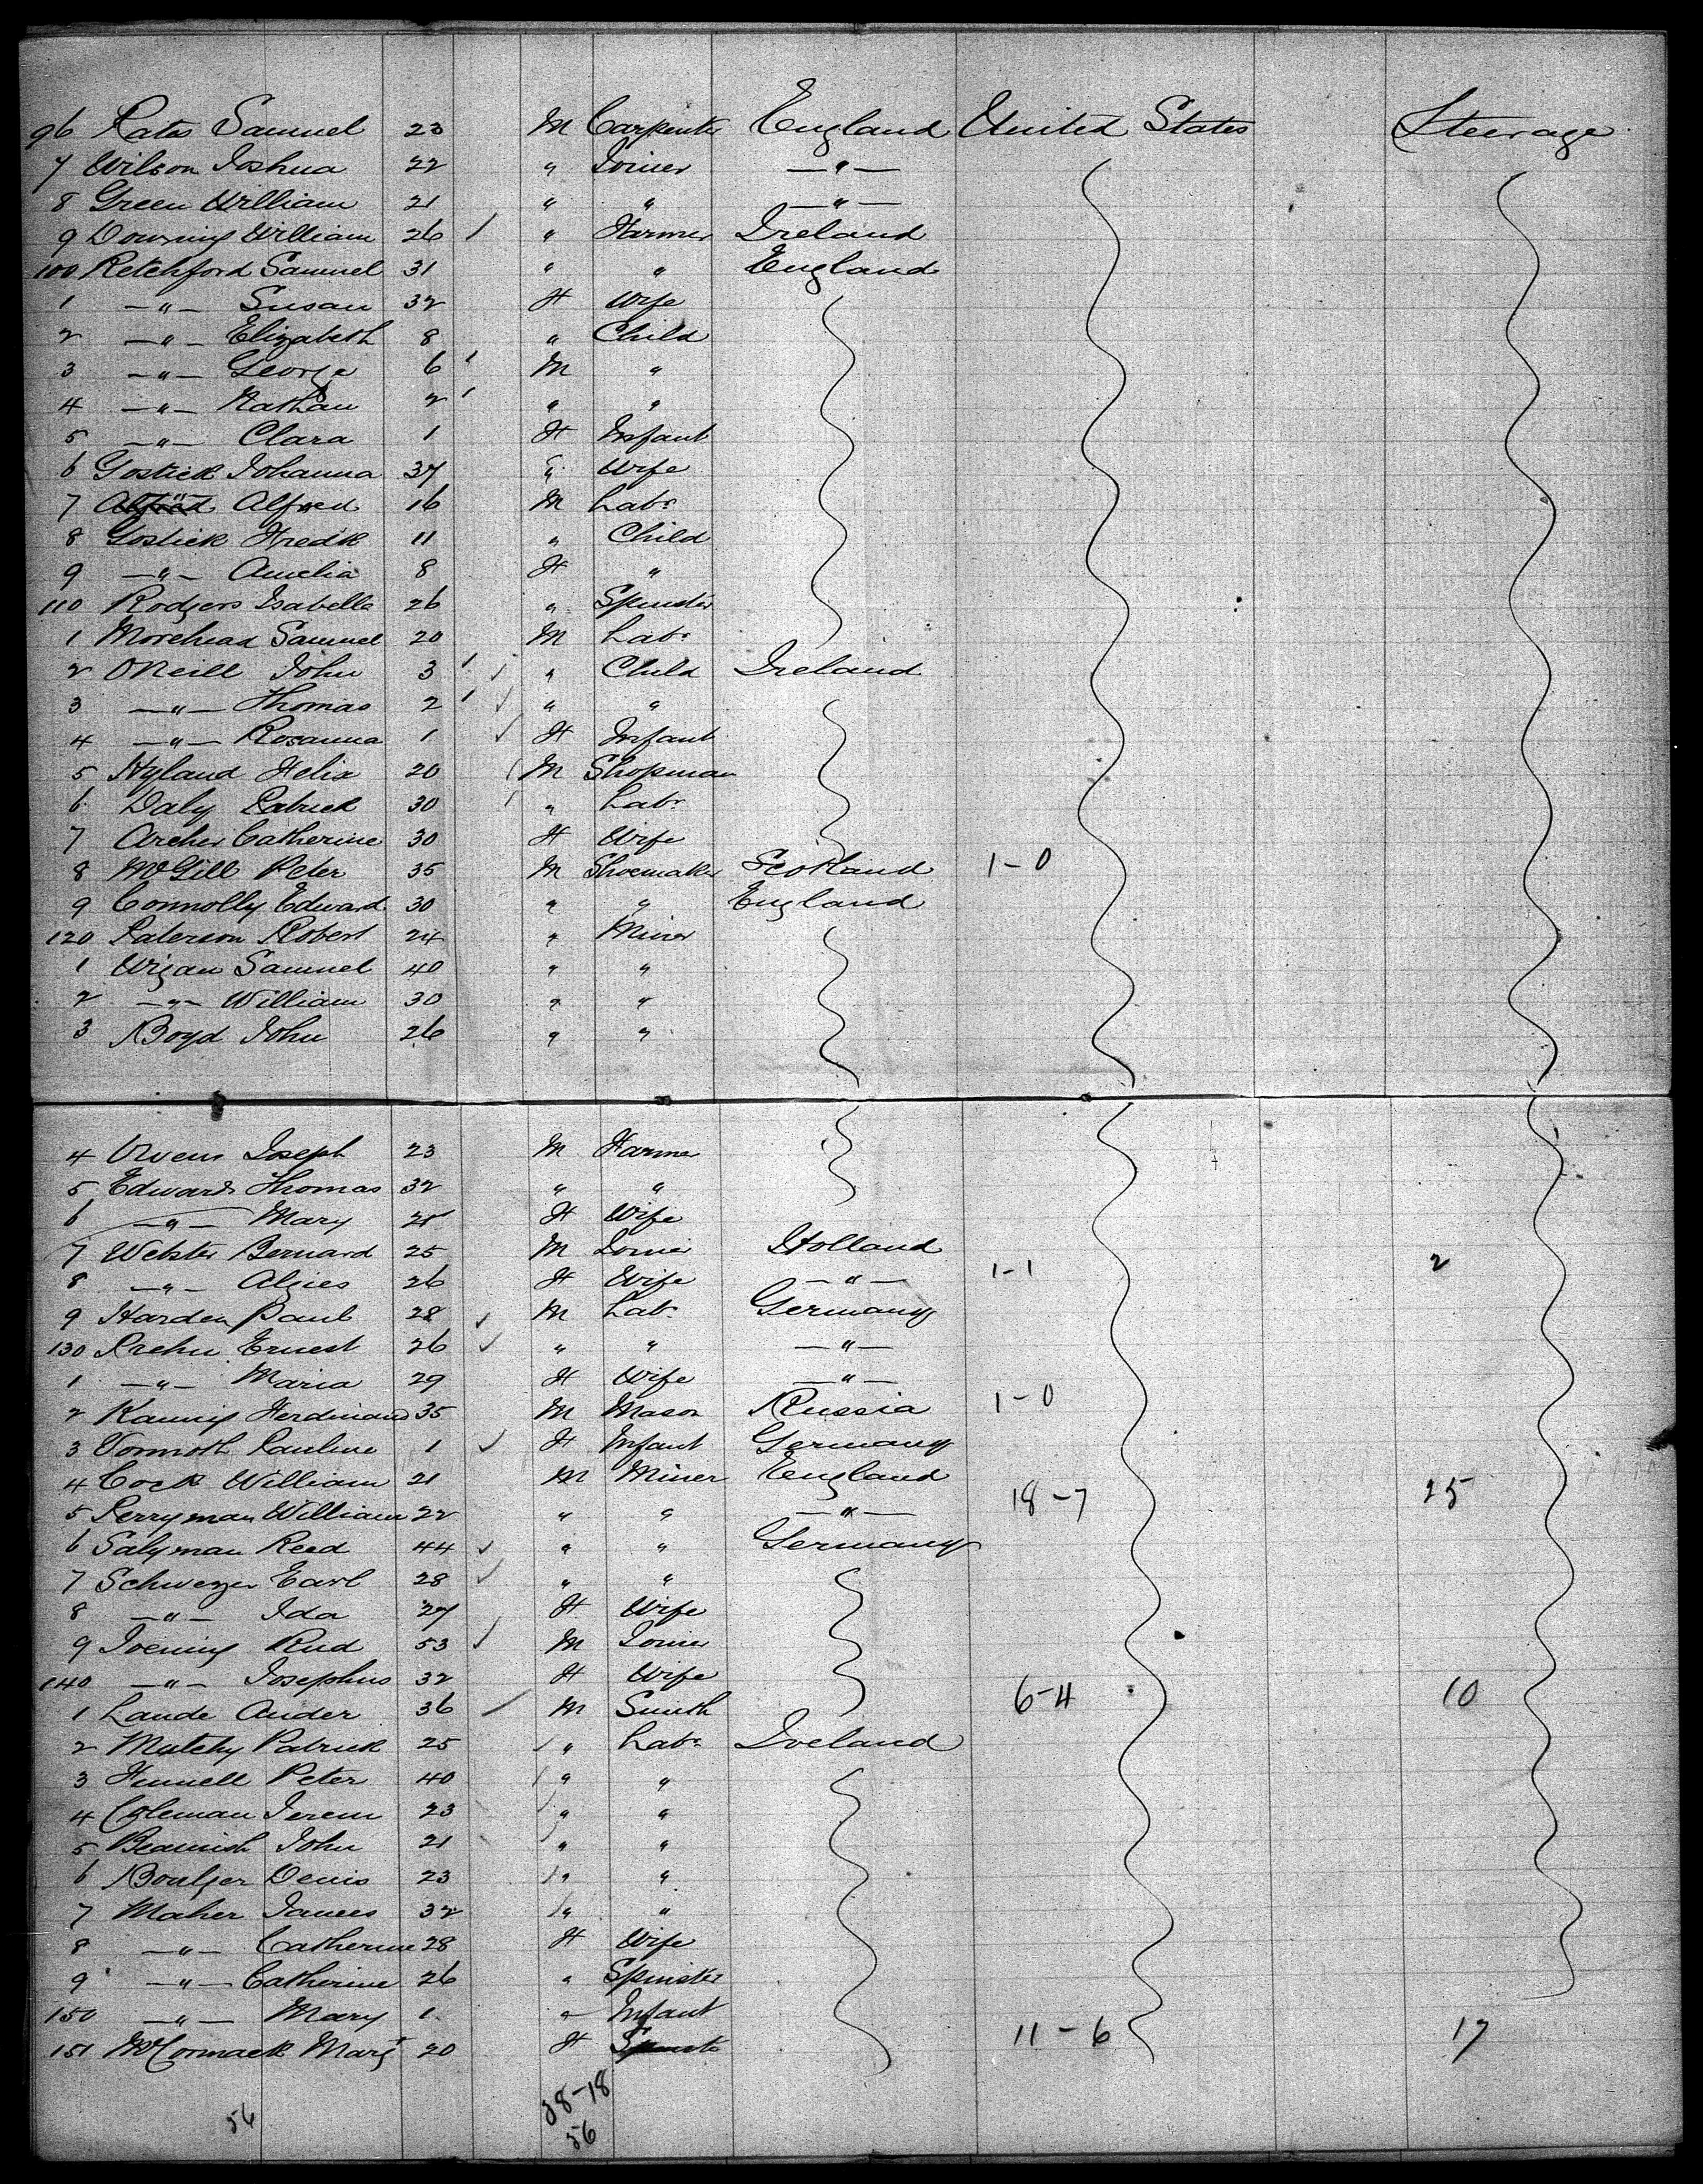 96 Rates Samuel 23 M Carpenter England United States Steerage
7 Wilson Joshua 22 " Joiner —"—
8 Green William 21 " " —"—
9 Downing William 26 / " Farmer Ireland
100 Retchford Samuel 31 " " England
1 —"— Susan 32 F Wife
2 —"— Elizabeth 8 " Child
3 —"— George 6 M "
4 —"— Nathan 2 " "
5 —"— Clara 1 F Infant
6 Gostick Johanna 37 " Wife
7 —"— Alfred 16 M Labr
8 Gostick Fredk 11 " Child
9 —"— Amelia 8 F "
110 Rodgers Isabella 26 " Spinster
1 Morehead Samuel 20 M Labr
2 ONeill John 3 " Child Ireland
3 —"— Thomas 2 " "
4 —"— Rosanna 1 F Infant
5 Hyland Felix 20 M Shopman
6 Daly Patrick 30 " Labr
7 Archer Catherine 30 F Wife
8 McGill Peter 35 M Shoemaker Scotland 1-0
9 Connolly Edward 30 " " England
120 Paterson Robert 24 " Miner
1 Wigan Samuel 40 " "
2 —"— William 30 " "
3 Boyd John 26 " "
4 Owens Joseph 23 M Farmer
5 Edwards Thomas 32 " "
6 —"— Mary F Wife
7 Webster Bernard 25 M Joiner Holland
8 —"— 26 F Wife —"— 1-1 2
9 Harden Paul 28 M Labr Germany
130 Ernest 26 " " —"—
1 —"— Maria 29 F Wife —"—
2 Ferdinand 35 M Mason Russia 1-0
3 Pauline 1 F Infant Germany
4 Cock William 21 M Miner England
5 Perryman William 22 " " —"— 18-7 25
6 Salyman Reed 44 " " Germany
7 Schwezer Earl 28 " "
8 —"— Ida 27 F Wife
9 Rud 53 M Joiner
140 —"— Josephus 32 F Wife 6-4 10
1 Lande Ander 36 M Smith
2 Patrick 25 " Labr Ireland
3 Peter 40 " "
4 Coleman Jerem 23 " "
5 Beamish John 21 " "
6 Boulger Denis 23 " "
7 Maher James 32 " "
8 —"— Catherine 28 F Wife
9 —"— Catherine 26 " Spinster
150 —"— Mary 1 " Infant
151 McCormack Margt 20 F Spinst 11-6 17
38-18
56 56